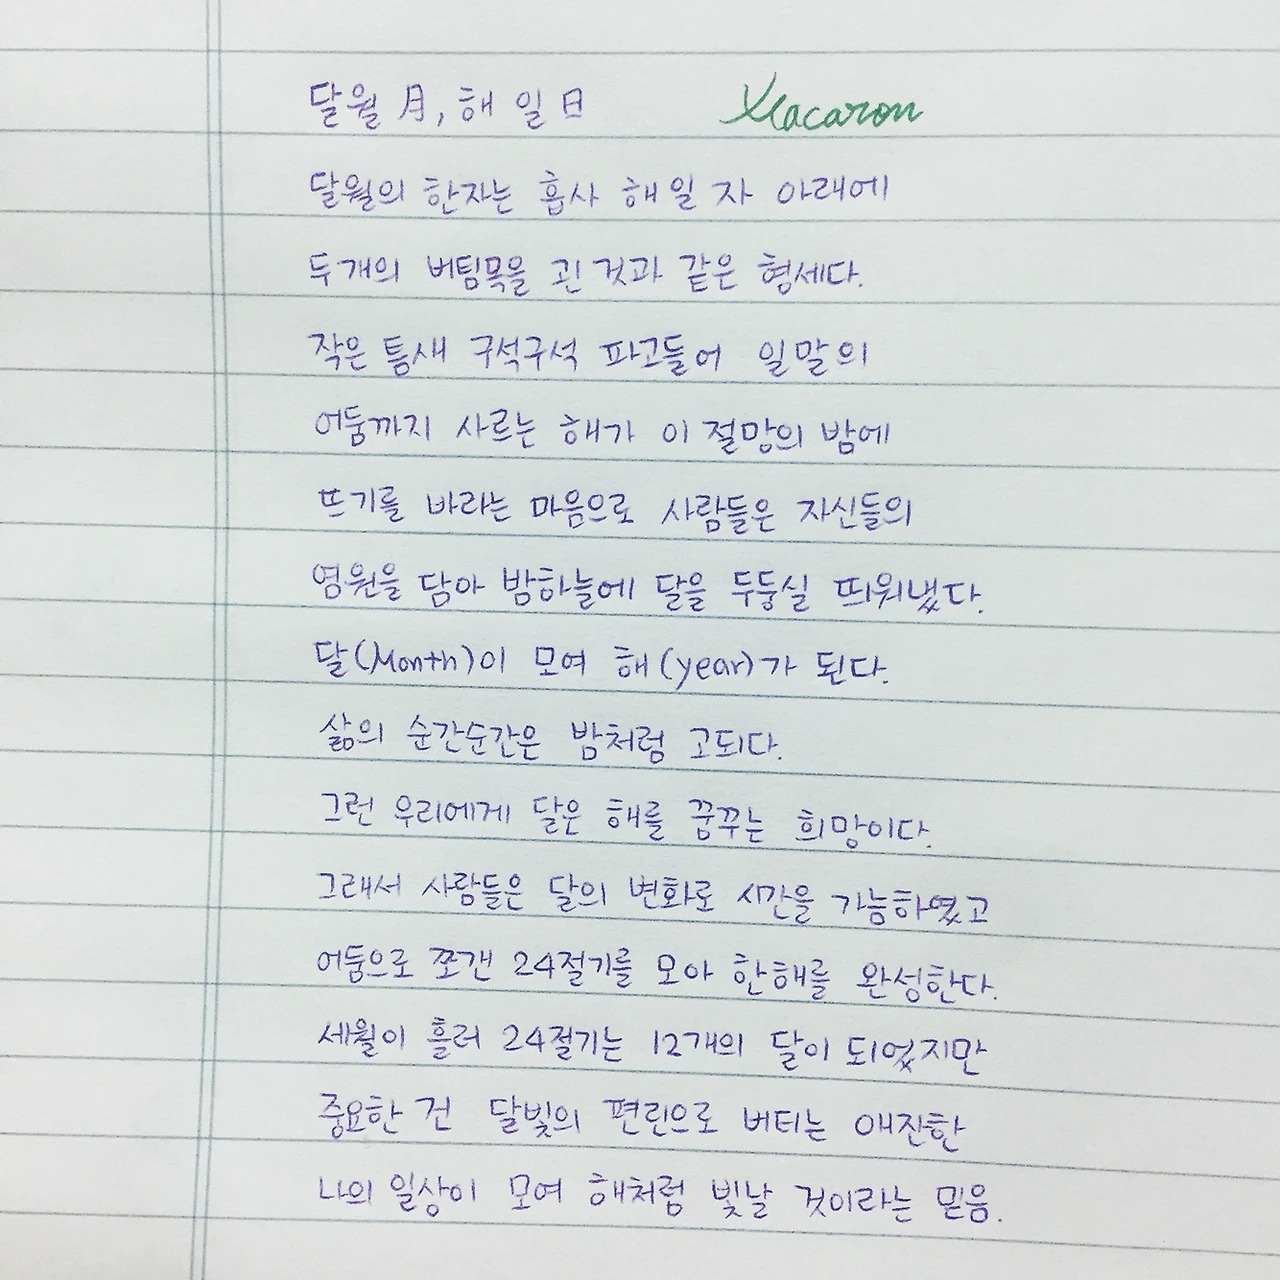 달월 月, 해 일 日 Macaron
달월의 한자는 흡사 해일 자 아래에
두개의 버팀목을 괸 것과 같은 형세다.
작은 틈새 구석구석 파고들어 일말의
어둠까지 사르는 해가 이 절망의 밤에
뜨기를 바라는 마음으로 사람들은 자신들의
염원을 담아 밤하늘에 달을 두둥실 띄워냈다.
달(Month)이 모여 해(year)가 된다.
삶의 순간순간은 밤처럼 고되다.
그런 우리에게 달은 해를 꿈꾸는 희망이다.
그래서 사람들은 달의 변화로 시간을 가늠하였고
어둠으로 쪼갠 24절기를 모아 한해를 완성한다.
세월이 흘러 24절기는 12개의 달이 되었지만
중요한 건 달빛의 편린으로 버티는 애잔한
나의 일상이 모여 해처럼 빛날 것이라는 믿음.